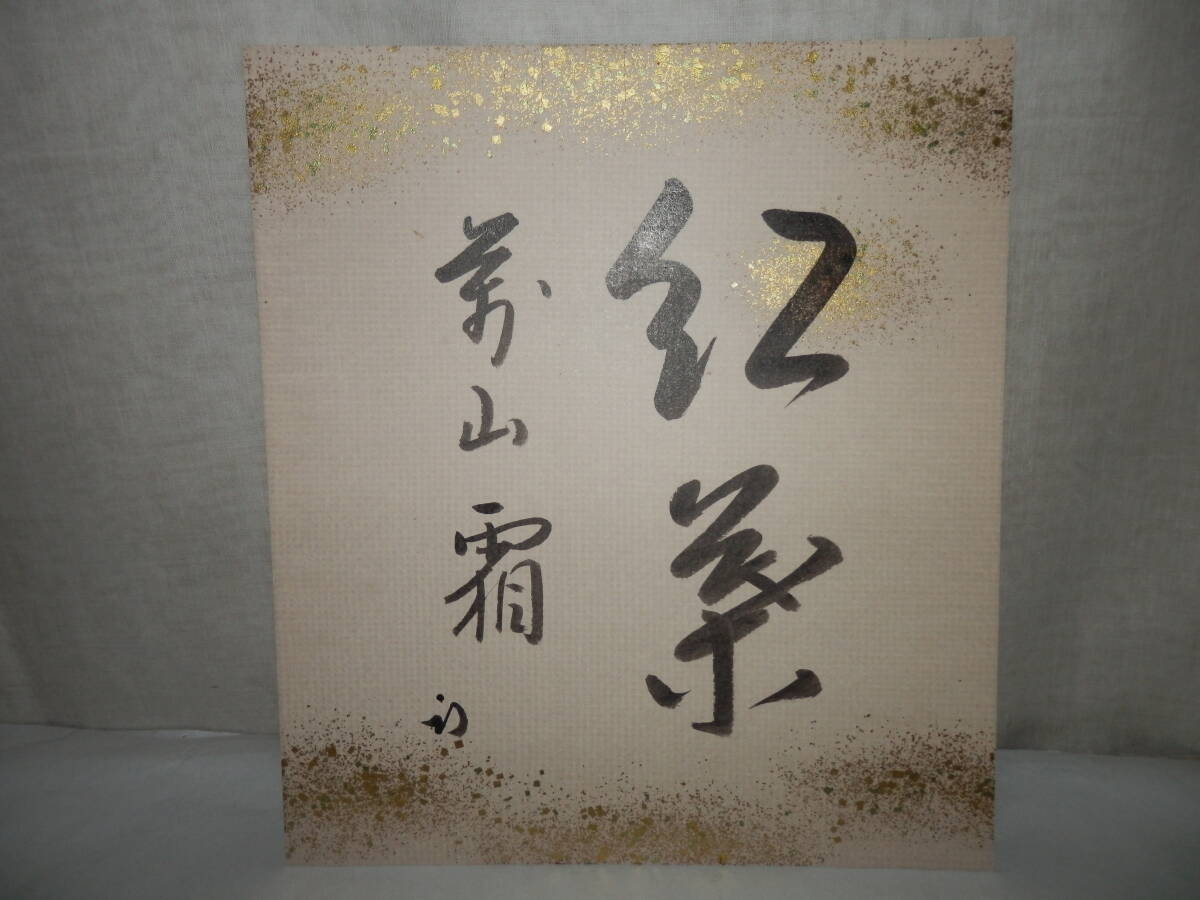 紅葉
萬山霜